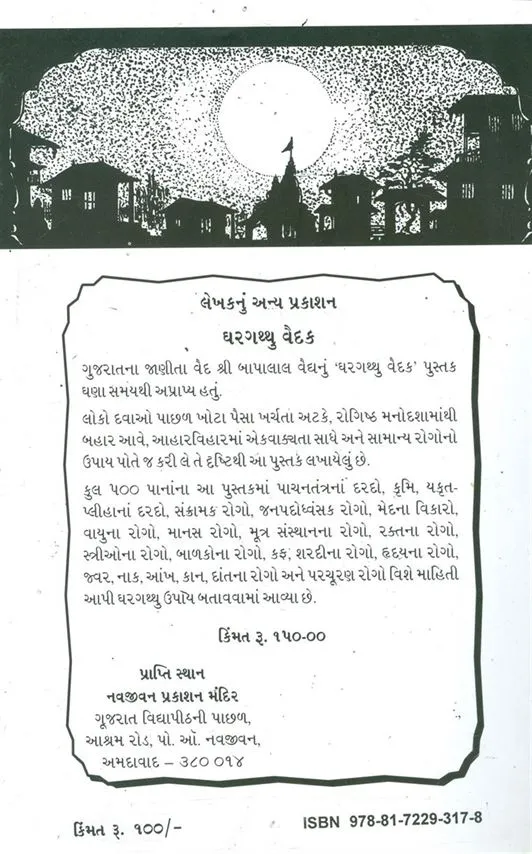 લેખકનું અન્ય પ્રકાશન
ઘરગથ્થુ વૈદક
ગુજરાતના જાણીતા વૈદ શ્રી બાપાલાલ વૈદ્યનું ‘ઘરગથ્થુ વૈદક’ પુસ્તક
ઘણા સમયથી અપ્રાપ્ય હતું.
લોકો દવાઓ પાછળ ખોટા પૈસા ખર્ચતા અટકે, રોગિષ્ઠ મનોદશામાંથી
બહાર આવે, આહારવિહારમાં એકવાક્યતા સાધે અને સામાન્ય રોગોનો
ઉપાય પોતે જ કરી લે તે દૃષ્ટિથી આ પુસ્તક લખાયેલું છે.
કુલ ૫૦૦ પાનાંના આ પુસ્તકમાં પાચનતંત્રનાં દરદો, કૃમિ, યકૃત-
પ્લીહાનાં દરદો, સંક્રામક રોગો, જનપદોધ્વંસક રોગો, મેદના વિકારો,
વાયુના રોગો, માનસ રોગો, મૂત્ર સંસ્થાનના રોગો, રક્તના રોગો,
સ્ત્રીઓના રોગો, બાળકોના રોગો, કફ, શરદીના રોગો, હૃદયના રોગો,
જ્વર, નાક, આંખ, કાન, દાંતના રોગો અને પરચૂરણ રોગો વિશે માહિતી
આપી ઘરગથ્થુ ઉપાય બતાવવામાં આવ્યા છે.
કિંમત રૂ. ૧૫૦-૦૦
પ્રાપ્તિ સ્થાન
નવજીવન પ્રકાશન મંદિર
ગૂજરાત વિદ્યાપીઠની પાછળ,
આશ્રમ રોડ, પો. ઑ. નવજીવન,
અમદાવાદ – ૩૮૦ ૦૧૪
કિંમત રૂ. ૧૦૦/-
ISBN 978-81-7229-317-8